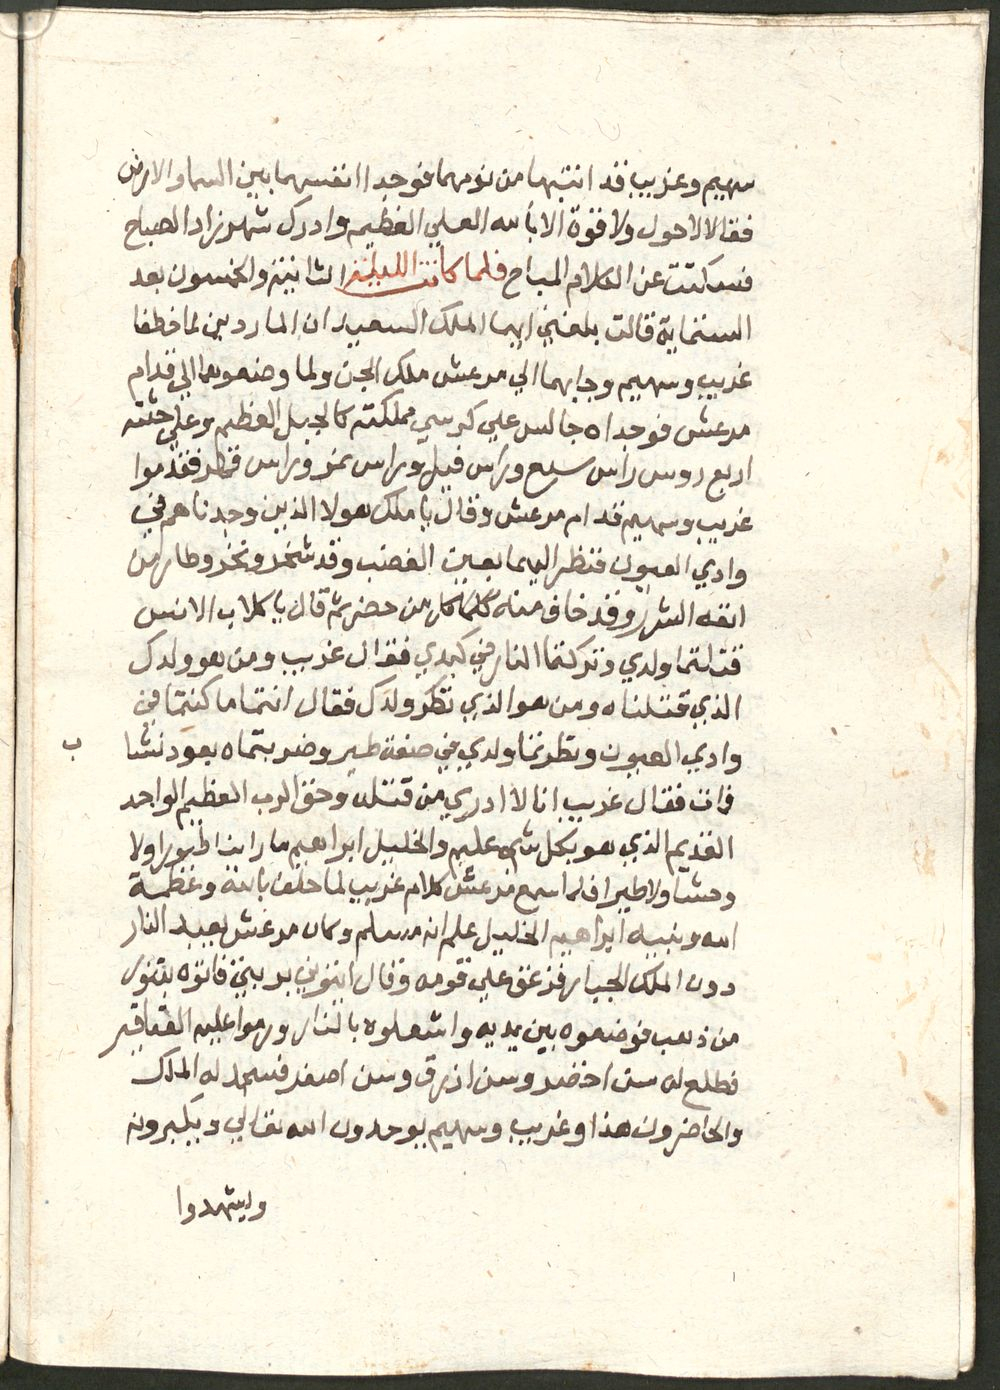 سهيم وغريب قد انتبها من نومهما فوجدا انفسهما بين السما والارض
فقالا لا حول ولا قوة الا بالله العلي العظيم وادرك شهرزاد الصباح
فسكتت عن الكلام المباح فلما كانت الليلة الثانية والخمسون بعد
الستماية قالت بلغني ايها الملك السعيد ان الماردين لما خطفا
غريب وسهيم وجابهما الي مرعش ملك الجن ولما وضعوهما الي قدام
مرعش فوجداه جالس علي كرسي مملكته كالجبل العظيم وعلي جثته
اربع روس راس سبع وراس فيل وراس نمر وراس فهد فقدموا
غريب وسهيم قدام مرعش وقال يا ملك هولا الذين وجدناهم في
وادي العيون فنظر اليهما بعين الغضب وقد شخر ونخر وطار من
انفه الشرر وقد خاف منه كلمن حضر ثم قال يا كلاب الانس
قتلتما ولدي وتركتما النار في كبدي فقال غريب ومن هو ولدك
الذي قتلناه ومن هو الذي نظر ولدك فقال انتما ما كنتما في
وادي العيون ونظرتما ولدي في صفة طير وضربتماه بعود نشا
ب
فمات فقال غريب انا لا ادري من قتله وحق الرب العظيم الواحد
القديم الذي هو بكل شي عليم والخليل ابراهيم ما راينا طيورا ولا
وحشا ولا طيرا فلما سمع مرعش كلام غريب لما حلف بالله وعظمة
الله ونبيه ابراهيم الخليل علم انه مسلم وكان مرعش يعبد النار
دون الملك الجبار فزعق علي قومه وقال ايتوني بربتي فاتوه بتنور
من ذهب فوضعوه بين يديه واشعلوه بالنار ورموا عليه العقاقير
فطلع له سن اخضر وسن ازرق وسن اصفر فسجد له الملك
والحاضرون هذا وغريب وسهيم يوحدون الله تعالي ويكبرونه
ويشهدوا